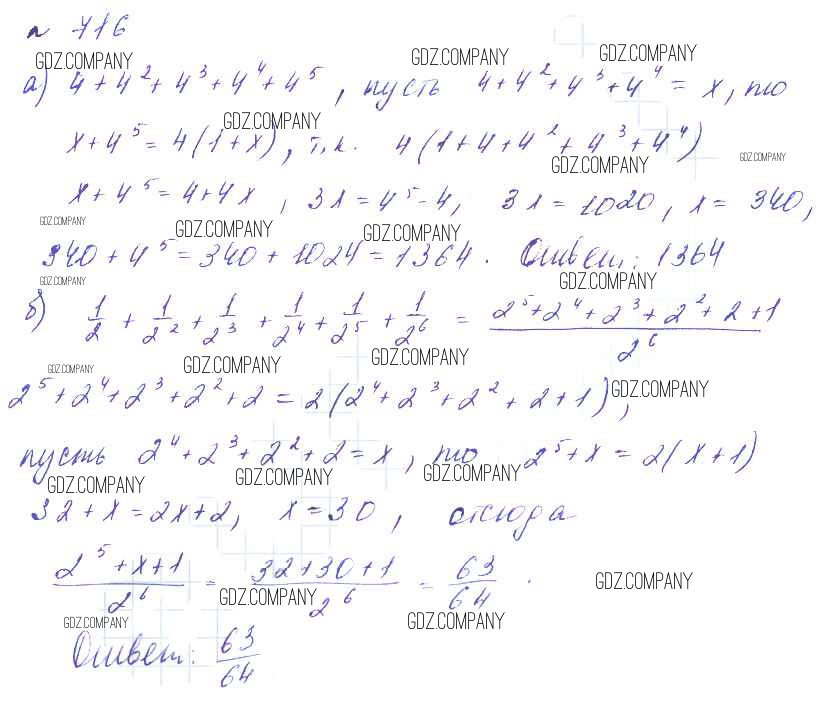 n 716
GDZ.COMPANY GDZ.COMPANY GDZ.COMPANY
а) 4+4²+4³+4⁴+4⁵, пусть 4+4²+4³+4⁴=x, то
GDZ.COMPANY
x+4⁵=4(1+x), т.к. 4(1+4+4²+4³+4⁴)
GDZ.COMPANY GDZ.COMPANY
x+4⁵=4+4x, 3x=4⁵-4, 3x=1020, x=340,
GDZ.COMPANY GDZ.COMPANY GDZ.COMPANY
340+4⁵=340+1024=1364. Ответ: 1364
GDZ.COMPANY GDZ.COMPANY
б) 1/2 + 1/2² + 1/2³ + 1/2⁴ + 1/2⁵ + 1/2⁶ = (2⁵+2⁴+2³+2²+2+1)/2⁶
GDZ.COMPANY GDZ.COMPANY GDZ.COMPANY
2⁵+2⁴+2³+2²+2=2(2⁴+2³+2²+2+1),
GDZ.COMPANY
пусть 2⁴+2³+2²+2=x, то 2⁵+x=2(x+1)
GDZ.COMPANY GDZ.COMPANY GDZ.COMPANY
32+x=2x+2, x=30, отсюда
(2⁵+x+1)/2⁶ = (32+30+1)/2⁶ = 63/64.
GDZ.COMPANY GDZ.COMPANY
GDZ.COMPANY GDZ.COMPANY
Ответ: 63/64